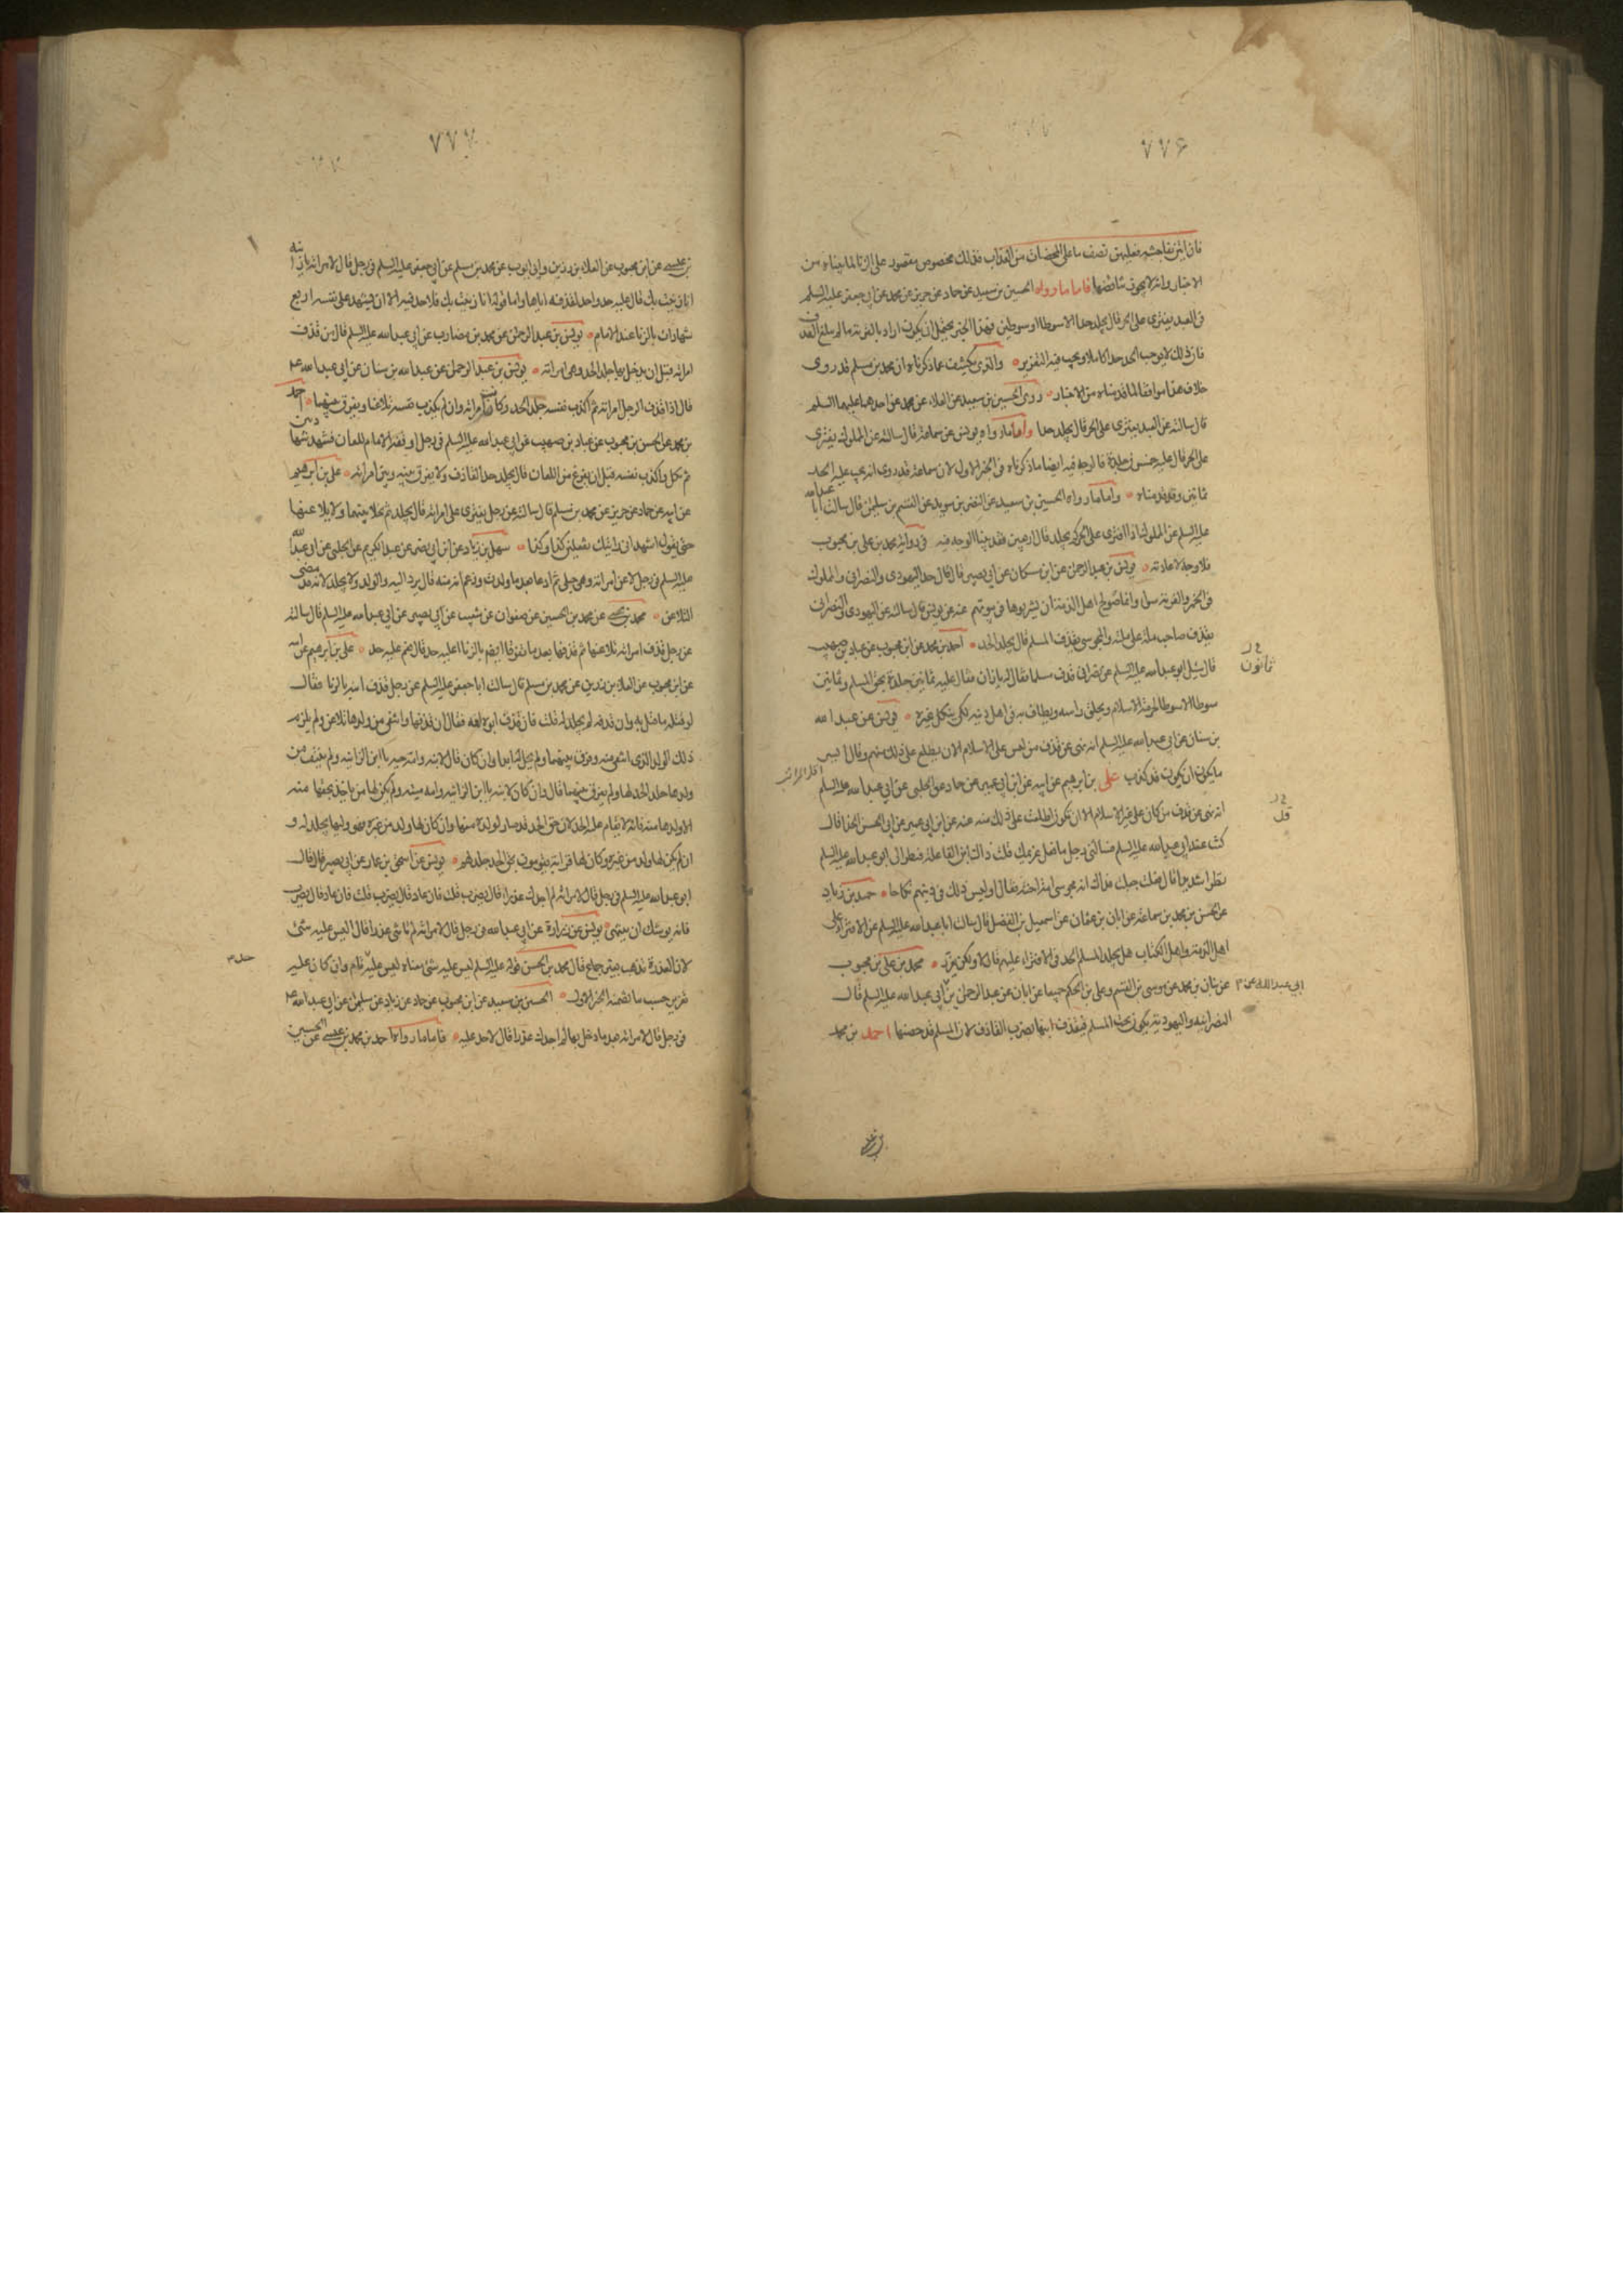 ٧٧۶
فان اتين بفاحشة فعليهن نصف ما على المحصنات من العذاب فذلك مخصوص مقصود على الزنا لما بيناه من
الاخبار وانه لا يجوز تناقضها فاما ما رواه الحسين بن سعيد عن حماد عن حريز عن محمد عن ابي جعفر عليه السلم
فى العبد يفترى على الحر قال يجلد حدا الا سوطا او سوطين فهذا الخبر يحتمل ان يكون اراد بالفرية ما لم يبلغ القذف
فان ذلك لا يوجب الحد حدا كاملا ويجب فيه التعزير والذى يكشف عما ذكرناه ان محمد بن مسلم قد روى
خلاف هذا موافقا لما قدمناه من الاخبار روى الحسين بن سعيد عن العلاء عن محمد عن احدهما عليهما السلم
قال سالته عن العبد يفترى على الحر قال يجلد حدا واما ما رواه يونس عن سماعة قال سالته عن المملوك يفترى
على الحر قال عليه خمسون جلدة فالوجه فيه ايضا ما ذكرناه فى الخبر الاول لان سماعة قد روى انه يجب عليه الحد
ثمانين وقد قدمناه واما ما رواه الحسين بن سعيد عن النضر بن سويد عن القسم بن سليمن قال سالت ابا عبد الله
عليه السلم عن المملوك اذا افترى على الحر كم يجلد قال اربعين فقد بينا الوجه فيه فى رواية محمد بن على بن محبوب
فلا وجه لاعادته يونس بن عبد الرحمن عن ابن مسكان عن ابي بصير قال قال حد اليهودى والنصرانى والمملوك
فى الخمر والفرية سواء وانما صولح اهل الذمة ان يشربوها فى بيوتهم عنه عن يونس قال سالته عن اليهودى والنصرانى
يقذف صاحب ملة على ملة والمجوسى يقذف المسلم قال يجلد الحد احمد بن محمد عن ابن محبوب عن عباد بن صهيب
قال سئل ابو عبد الله عليه السلم عن نصرانى قذف مسلما فقال له يا زان فقال عليه ثمانين جلدة بحق المسلم وثمانين
سوطا الا سوطا لحرمة الاسلام ويحلق راسه ويطاف به فى اهل دينه لكى ينكل غيره يونس عن عبد الله
بن سنان عن ابي عبد الله عليه السلم انه نهى عن قذف من ليس على الاسلام الا ان يطلع على ذلك منهم وقال ايسر
ما يكون ان يكون قد كذب على بن ابرهيم عن ابيه عن ابن ابي عمير عن حماد عن الحلبى عن ابي عبد الله عليه السلم
انه نهى عن قذف من كان على غير الاسلام الا ان تكون اطلعت على ذلك منه عنه عن ابن ابي عمير عن ابي الحسن الحذا قال
كنت عند ابي عبد الله عليه السلم فسالنى رجل ما فعل غريمك قلت ذاك ابن الفاعلة فنظر الى ابو عبد الله عليه السلم
نظرا شديدا قال فقلت جعلت فداك انه مجوسى امه اخته فقال اوليس ذلك فى دينهم نكاحا حميد بن زياد
عن الحسن بن محمد بن سماعة عن ابان بن عثمان عن اسمعيل بن الفضل قال سالت ابا عبد الله عليه السلم عن الافتراء على
اهل الذمة واهل الكتاب هل يجلد المسلم الحد فى الافتراء عليهم قال لا ولكن يعزر محمد بن على بن محبوب
عن بنان بن محمد عن موسى بن القسم وعلى بن الحكم جميعا عن ابان عن عبد الرحمن بن ابي عبد الله عليه السلم قال
ابي عبد الله عن
النصرانية واليهودية يكون تحت المسلم فيقذف ابنها يضرب القاذف لان المسلم قد حصنها احمد بن محمد
ثمانون
٧٧٧
بن عيسى عن ابن محبوب عن العلاء بن رزين وابى ايوب عن محمد بن مسلم عن ابي جعفر عليه السلم فى رجل قال لامراته يا زانية
انا زنيت بك قال عليه حد واحد لقذفه اياها واما قوله انا زنيت بك فلا حد فيه الا ان يشهد على نفسه اربع
شهادات بالزنا عند الامام يونس بن عبد الرحمن عن محمد بن مضارب عن ابي عبد الله عليه السلم قال من قذف
امراته قبل ان يدخل بها جلد الحد وهى امراته يونس بن عبد الرحمن عن عبد الله بن سنان عن ابي عبد الله عم
قال اذا قذف الرجل امراته ثم اكذب نفسه جلد الحد وكانت امراته وان لم يكذب نفسه تلاعنا ويفرق بينهما احمد
بن محمد عن الحسن بن محبوب عن عباد بن صهيب عن ابي عبد الله عليه السلم فى رجل اوقفه الامام للعان فشهد شهادتين
ثم نكل واكذب نفسه قبل ان يفرغ من اللعان قال يجلد حد القاذف ولا يفرق بينه وبين امراته على بن ابرهيم
عن ابيه عن حماد عن حريز عن محمد بن مسلم قال سالته عن رجل يفترى على امراته قال يجلد ثم يخلا بينهما ولا يلاعنها
حتى يقول اشهد انى رايتك تفعلين كذا وكذا سهل بن زياد عن ابن ابي نصر عن عبد الكريم عن الحلبى عن ابي عبد الله
عليه السلم فى رجل لاعن امراته وهى حبلى ثم ادعا ولدها بعد ما ولدت وزعم انه منه قال يرد اليه الولد ولا يجلد لانه قد مضى
التلاعن محمد بن يحيى عن محمد بن الحسين عن صفوان عن شعيب عن ابي بصير عن ابي عبد الله عليه السلم قال سالته
عن رجل قذف امراته فتلاعنا ثم قذفها بعد ما تفرقا ايضا بالزنا اعليه حد قال نعم عليه حد على بن ابرهيم عن ابيه
عن ابن محبوب عن العلاء بن رزين عن محمد بن مسلم قال سالت ابا جعفر عليه السلم عن رجل قذف ابنه بالزنا فقال
لو قتله ما قتل به وان قذفه لم يجلد له قلت فان قذف ابوه امه فقال ان قذفها وانتفى من ولدها تلاعنا ولم يلزمه
ذلك الولد الذى انتفى منه وفرق بينهما ولم تحل له ابدا وان كان قال لابنه وامه حية يا ابن الزانية ولم ينتف من
ولدها جلد الحد لها ولم يفرق بينهما قال وان كان قال لابنه يا ابن الزانية وامه ميتة ولم يكن لها من ياخذ بحقها منه
الا ولدها منه فانه لا يقام عليه الحد لان حق الحد قد صار لولده منها وان كان لها ولد من غيره فهو وليها يجلد له و
ان لم يكن لها ولد من غيره وكان لها قرابة يقومون بحق الحد جلد لهم يونس عن اسحق بن عمار عن ابي بصير قال قال
ابو عبد الله عليه السلم فى رجل قال لامراته لم اجدك عذراء قال يضرب قلت فان عاد قال يضرب قلت فان عاد قال يضرب
فانه يوشك ان ينتهى يونس عن زرارة عن ابي عبد الله فى رجل قال لامراته لم تاتنى عذراء قال ليس عليه شئ
لان العذرة تذهب بغير جماع قال محمد بن الحسن قوله عليه السلم ليس عليه شئ معناه ليس عليه حد تام وان كان عليه
تعزير حسب ما تضمنه الخبر الاول الحسين بن سعيد عن ابن محبوب عن حماد عن زياد عن سليمان عن ابي عبد الله عم
فى رجل قال لامراته بعد ما دخل بها لم اجدك عذرا قال لا حد عليه فاما ما رواه احمد بن محمد بن عيسى عن الحسين